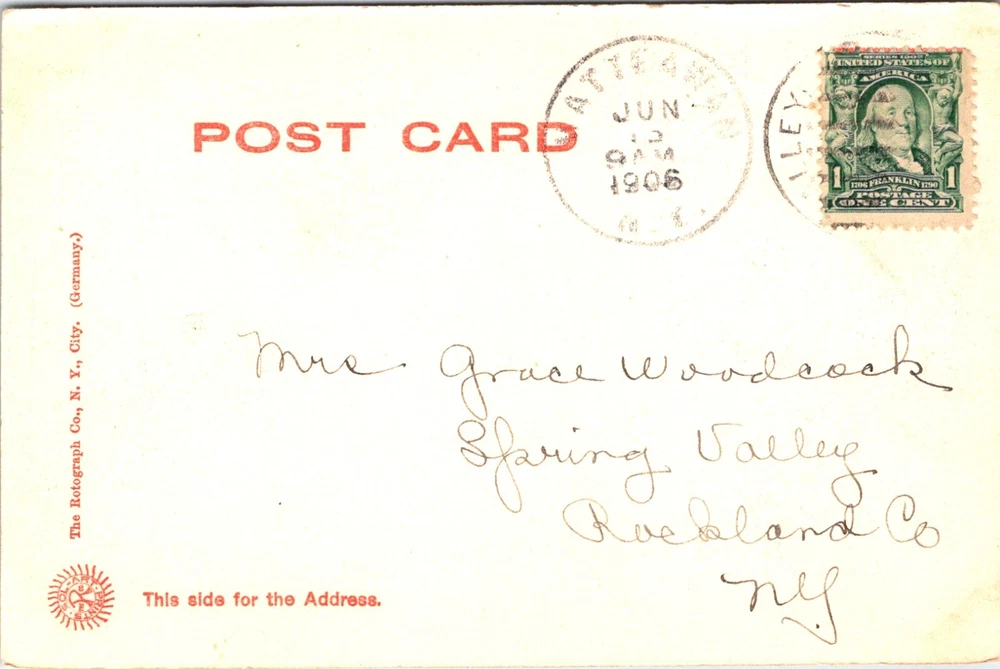 POST CARD
MATTEAWAN
JUN
9 AM
1906
N. Y.
SERIES 1902
UNITED STATES OF
AMERICA
1 1
1706 FRANKLIN 1790
POSTAGE
ONE CENT
The Rotograph Co., N. Y., City. (Germany.)
Mrs Grace Woodcock
Spring Valley
Rockland Co
NY
SOL-ART PRINTS
This side for the Address.